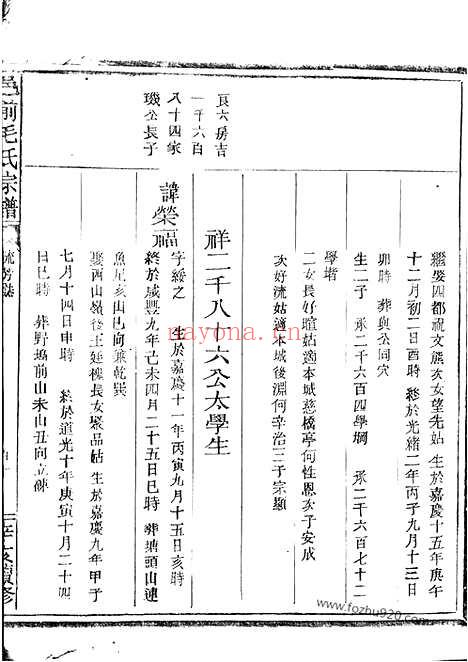 繼娶四都祝文熊次女望先姑 生於嘉慶十五年庚午
十二月初二日酉時 終於光緒二年丙子九月十三日
卯時 葬與公同穴
生二子 承二千六百四學堈 承二千六百七十二
學堦
二女長好暄姑適本城慈橋亭何性恩次子安成
次好流姑適本城後淵何辛治三子宗顯
祥二千八十六公太學生
良六房吉
一千六百
八十四家
璣公長子
諱榮福
字綏之 生於嘉慶十一年丙寅九月十五日亥時
終於咸豐九年己未四月二十五日巳時 葬塘頭山連
魚尾亥山巳向兼乾巽
娶西山嶺後王廷樓長女翠品姑 生於嘉慶九年甲子
七月十四日申時 終於道光十年庚寅十月二十四
日巳時 葬野塢前山未山丑向立碑
邑前毛氏宗譜
流芳誌
續修
nayona.cn
www.fozhu920.com